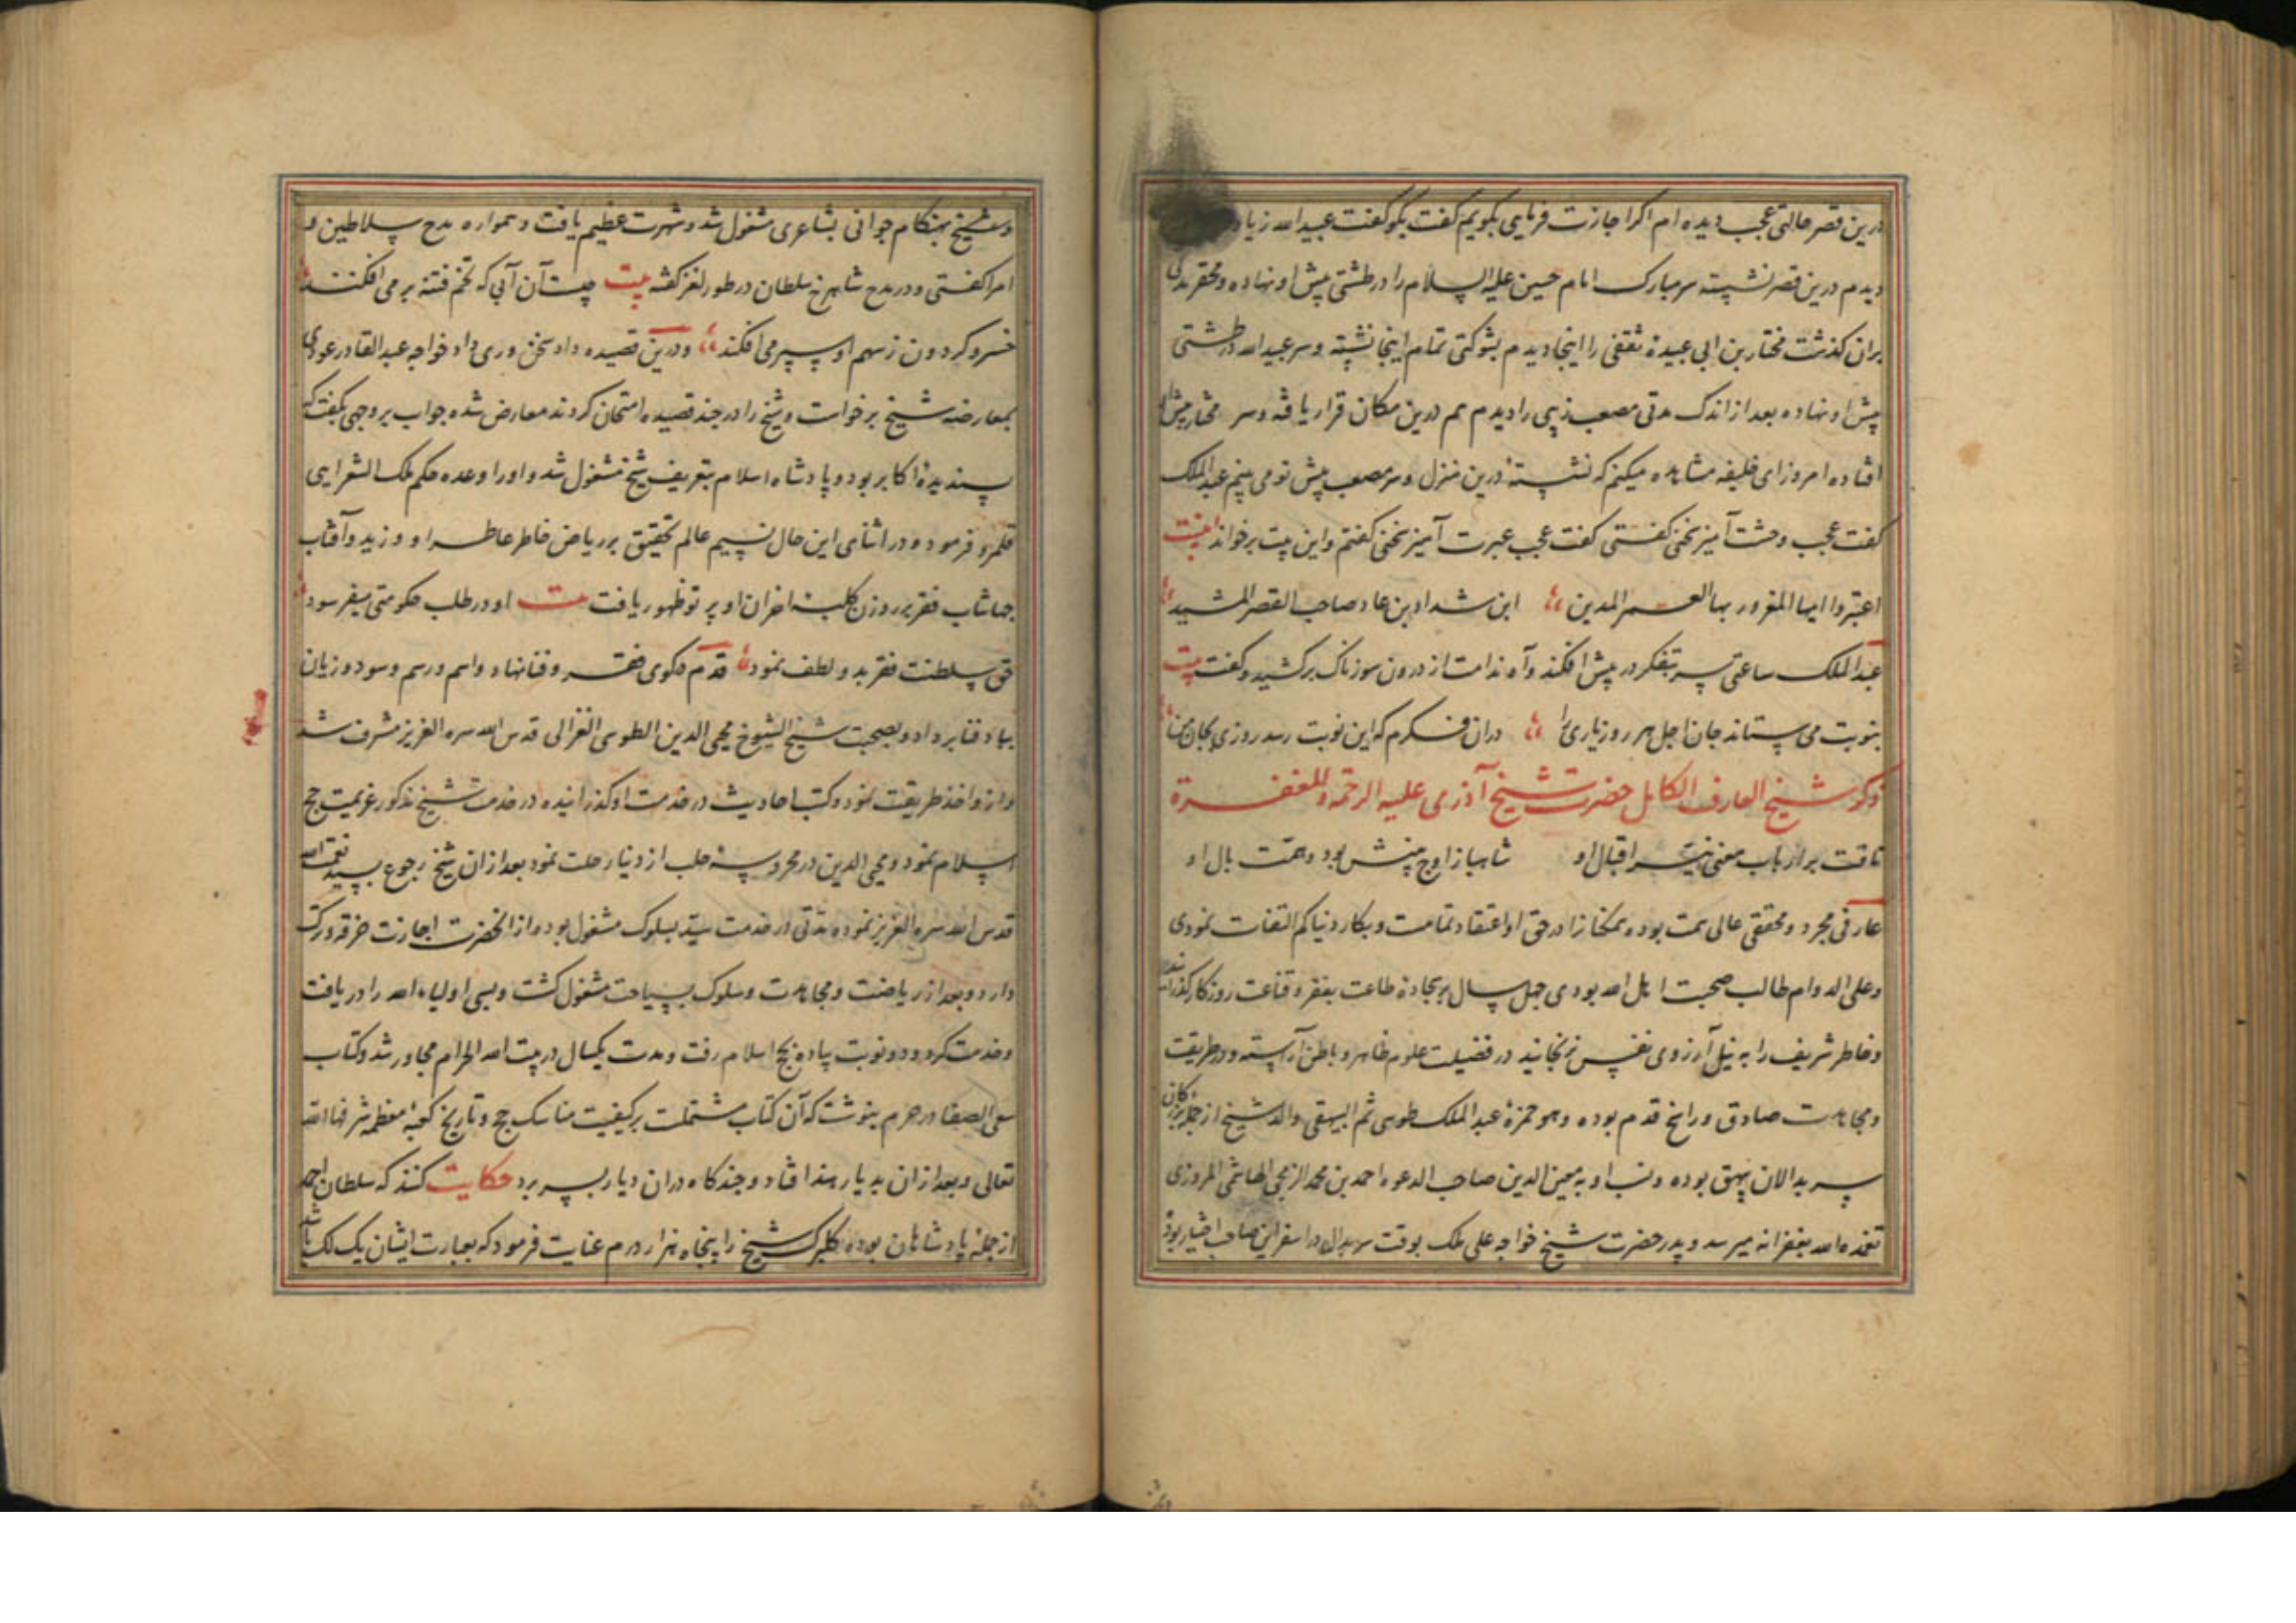 درین قصر حالتی عجب دیده ام اگر اجازت فرمایی بگویم گفت بگو گفت عبیدالله زیاد
دیدم درین قصر نشسته سر مبارک امام حسین علیه السلام را در طشتی پیش او نهاده و محقر مدتی
بران کذشت مختار بن ابی عبیدة ثقفی را اینجا دیدم بشوکتی تمام اینجا نشسته و سر عبیدالله در طشتی
پیش او نهاده بعد از اندک مدتی مصعب زبیر را دیدم هم درین مکان قرار یافته و سر مختار پیش او
افتاده امروز ای خلیفه مشاهده میکنم که نشسته درین منزل و سر مصعب پیش تو می بینم عبدالملک
کفت عجب وحشت آمیز سخنی کفتی کفت عجب عبرت آمیز سخنی کفتم و این بیت بر خواند بیت
اعتبروا ایها المغرور بها العمر المدین این شداد بن عاد صاحب القصر المشید
عبدالملک ساعتی سر بتفکر در پیش افکند و آه ندامت از درون سوزناک برکشید و کفت بیت
بنوبت می ستاند جان اجل هر روز یاری را دران فکرم که این نوبت رسد روزی بجان من
ذکر شیخ العارف الکامل حضرت شیخ آذری علیه الرحمة و المغفرة
تافت بر ارباب معنی نیر اقبال او شاهباز اوج بینش بود و همت بال او
عارفی مجرد و محققی عالی همت بوده همکنانرا در حق او اعتقاد تمامست و بکار دنیا کم التفات نمودی
و علی الدوام طالب صحبت اهل الله بودی چهل سال بر سجادة طاعت بفقر و قناعت روزکار کذرانید
و خاطر شریف را به نیل آرزوی نفس نرنجانید در فضیلت علوم ظاهر و باطن آراسته و در طریقت
و مجاهدت صادق و راسخ قدم بوده و هو حمزة عبدالملک طوسی ثم البیهقی والد شیخ از جمله بزرکان
سربدالان بیهق بوده و نسب او به معین الدین صاحب الدعوه احمد بن محمد الزمجی الهاشمی المروزی
تغمده الله بغفرانه میرسد و پدر حضرت شیخ خواجه علی ملک بوقت سربدال در اسفراین صاحب اختیار بود
و شیخ بهنکام جوانی بشاعری مشغول شد و شهرت عظیم یافت و همواره مدح سلاطین و
امرا کفتی و در مدح شاهرخ سلطان در طور لغز کفته بیت چیست آن آبی که تخم فتنه بر می افکند
خسرو کردون ز سهم او سپر می افکند و درین قصیده داد سخن وری داد خواجه عبدالقادر عودی
بمعارضه شیخ برخواست و شیخ را در چند قصیده امتحان کردند معارض شده جواب بر وجهی بکفت که
پسندیدة اکابر بود و پادشاه اسلام بتعریف شیخ مشغول شد و او را وعده حکم ملک الشعرایی
قلمرو فرمود و در اثنای این حال نسیم عالم تحقیق بر ریاض خاطر عاطر او وزید و آفتاب
جهانتاب فقر بر روزن کلبة احزان او پرتو ظهور یافت بیت او در طلب حکومتی میفرسود
حق سلطنت فقر بدو لطف نمود قدم بکوی فقر و فنا نهاد و اسم و رسم و سود و زیان
بباد فنا برداد و بصحبت شیخ الشیوخ محیی الدین الطوسی الغزالی قدس الله سره العزیز مشرف شد
و ازو اخذ طریقت نمود و کتب احادیث در خدمت او کذرانیده در خدمت شیخ مذکور عزیمت حج
اسلام نمود و محیی الدین در محروسه حلب از دنیا رحلت نمود بعد ازان شیخ رجوع بسید نعمة الله
قدس الله سره العزیز نموده مدتی در خدمت سید بسلوک مشغول بوده از انحضرت اجازت خرقه و برکت
دارد و بعد از ریاضت و مجاهدت و سلوک بسیاحت مشغول کشت و بسی اولیاء الله را دریافت
و خدمت کرد و دو نوبت پیاده بحج اسلام رفت و مدت یکسال در بیت الله الحرام مجاور شد و کتاب
سعی الصفا در حرم بنوشت که آن کتاب مشتملست بر کیفیت مناسک حج و تاریخ کعبهٔ معظمه شرفها الله
تعالی و بعد ازان بدیار هند افتاد و چندکاه دران دیار بسر برد حکایت کنند که سلطان احمد
از جمله پادشاهان بوده کلبرک شیخ را پنجاه هزار درم عنایت فرمود که بعبارت ایشان یک لک باشد